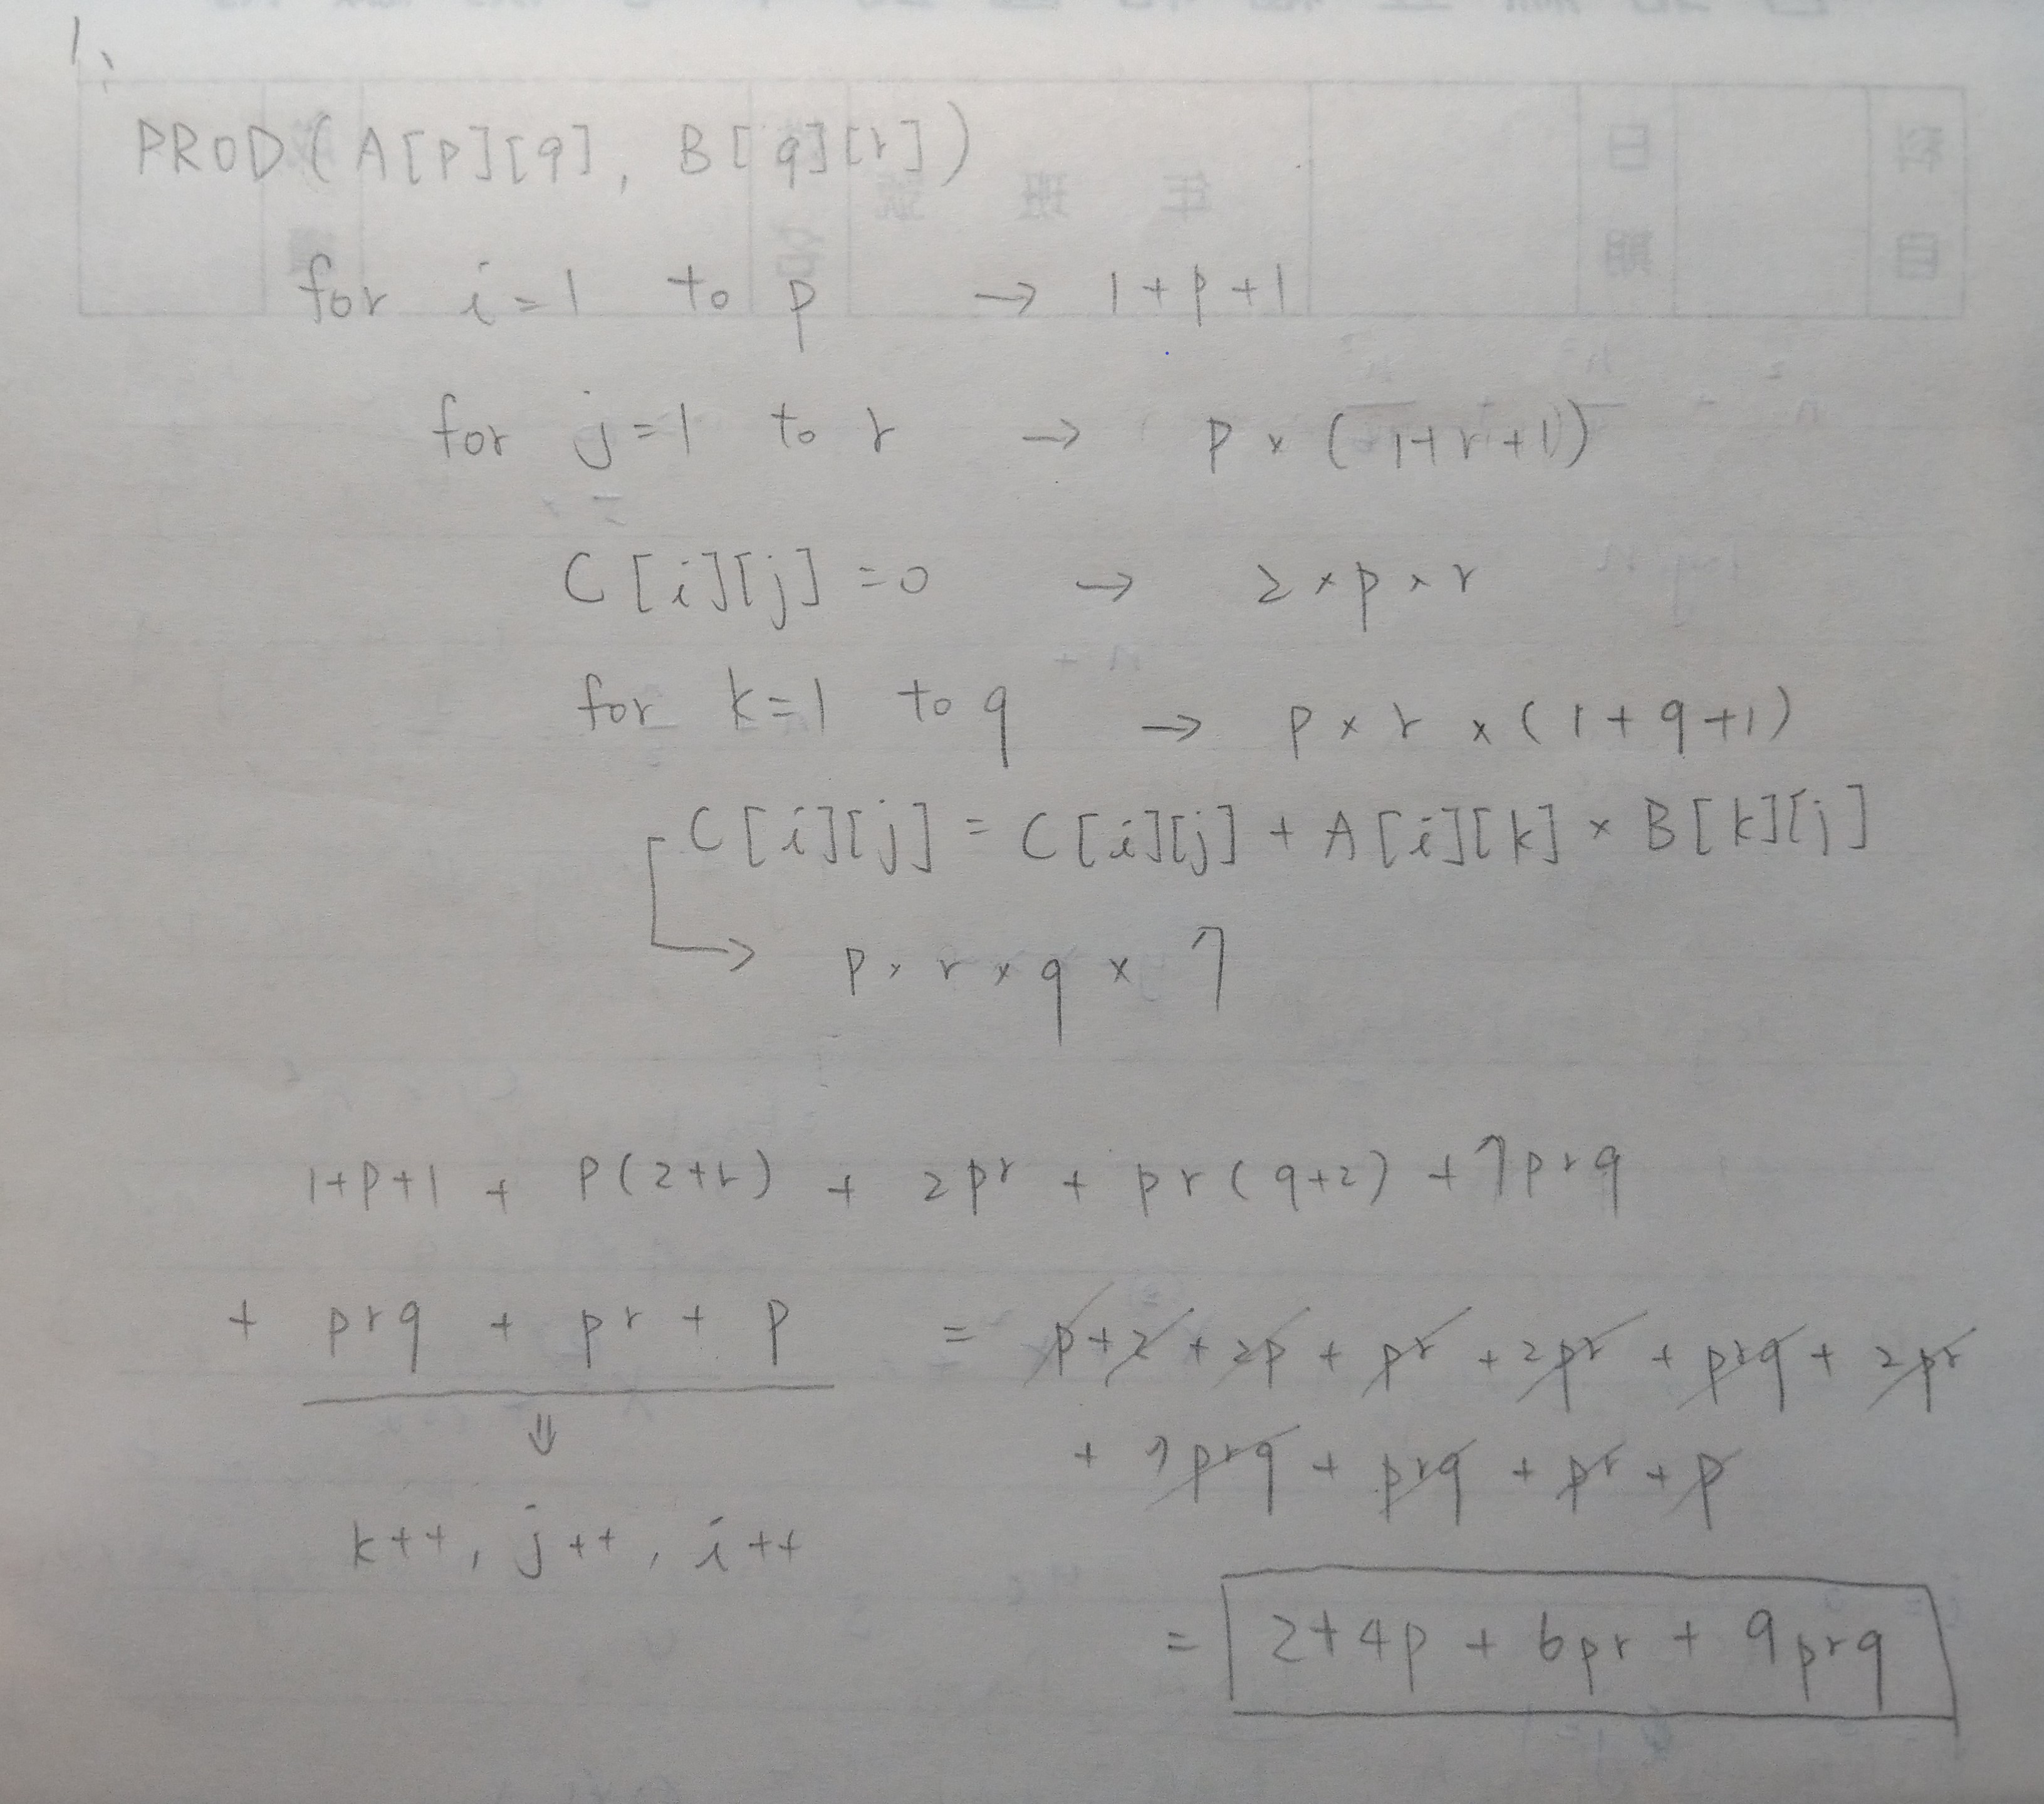 1、
PROD(A[p][q], B[q][r])
for i=1 to p → 1+p+1
for j=1 to r → p×(1+r+1)
C[i][j]=0 → 2×p×r
for k=1 to q → p×r×(1+q+1)
C[i][j] = C[i][j] + A[i][k] × B[k][j]
→ p×r×q×7
1+p+1 + p(2+r) + 2pr + pr(q+2) + 7prq
+ prq + pr + p = p+2+2p+pr+2pr+prq+2pr
+ 7prq + prq + pr + p
⇓
k++, j++, i++
= 2+4p + 6pr + 9prq
年 班 號
日期
科目